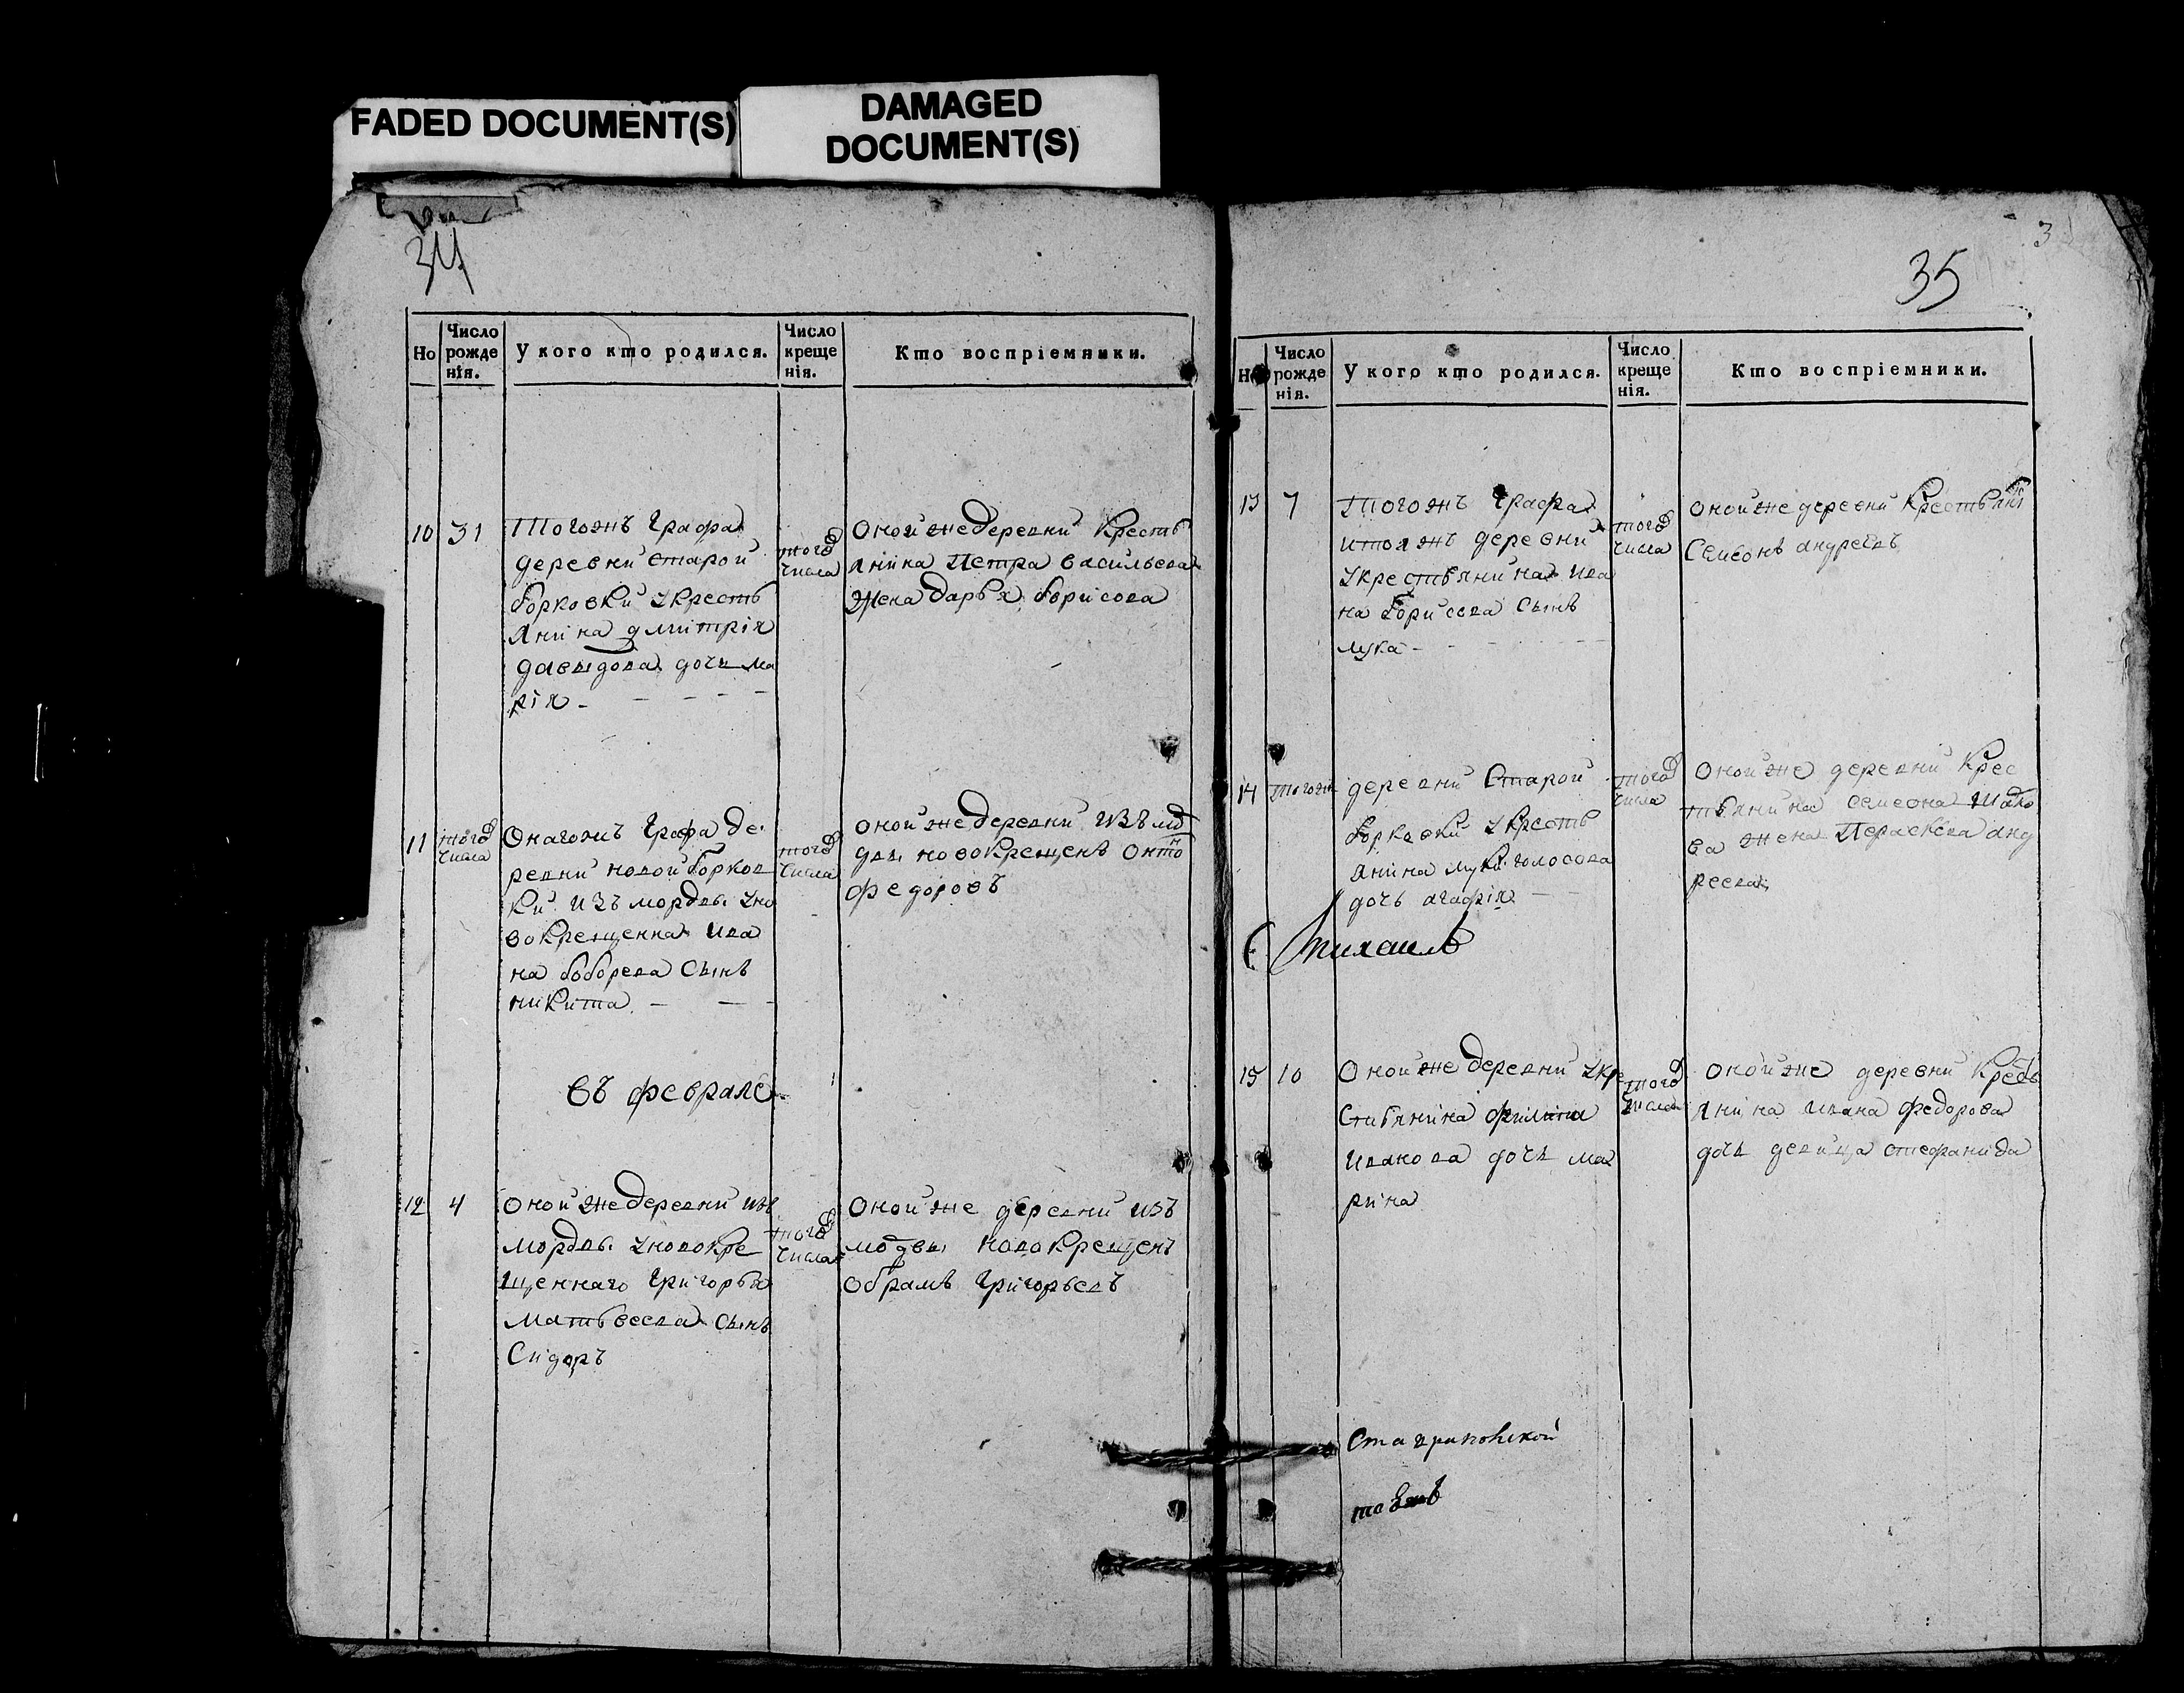 FADED DOCUMENT(S)
DAMAGED
DOCUMENT(S)
34
Но
Число
рожде
нія.
У кого кто родился.
Число
креще
нія.
Кто воспріемники.
10
31
Тогожъ Графа
деревни Старой
борковки укресть
янина дмитрія
давыдова дочь ма
рія
того
числа
Оной же деревни Кресть
янина Петра васильева
жена дарья борисова
11
того
числа
Онагожъ Графа де
ревни новой борков
ки изъ мордвы уно
вокрещенна ива
на боборева Сынъ
никита
того
числа
оной же деревни изъ мо
двы новокрещенъ онто
федоровъ
въ феврале
12
4
Оной же деревни изъ
мордвы уновокре
щеннаго Григорья
матвеева сынъ
Сидоръ
того
числа
Оной же деревни изъ
модвы новокрещенъ
обрамъ Григорьевъ
35
Число
рожде
нія.
У кого кто родился.
Число
креще
нія.
Кто воспріемники.
13
7
Тогожъ Графа
итояжъ деревни
укрестьянина ива
на борисова Сынъ
лука
того
числа
оной же деревни Крестьяни
Семионъ андреевъ
14
тогожъ
деревни Старой
борковки укресть
янина луки голосова
дочь агафія
того
числа
Оной же деревни Крес
тьянина семиона
ва жена Пераскева анд
реева
Михаилъ
15
10
Оной же деревни укре
стьянина филипа
иванова дочь ма
рина
того
числа
оной же деревни Кресь
янина ивана федорова
дочь девица стефанида